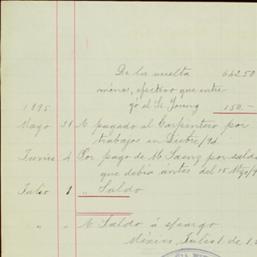 De la vuelta 642.50
menos, efectivo que entre
gó el Sr. Young 150.—
1895
Mayo 31 A pagado al Carpintero por
trabajos en Dicbre/94
Junio 4 Por pago de M. Saenz por saldo
que debía ántes del 15 Mzo/9
Julio 1 " Saldo
" " A Saldo á s/cargo
México, Julio 1 de 1